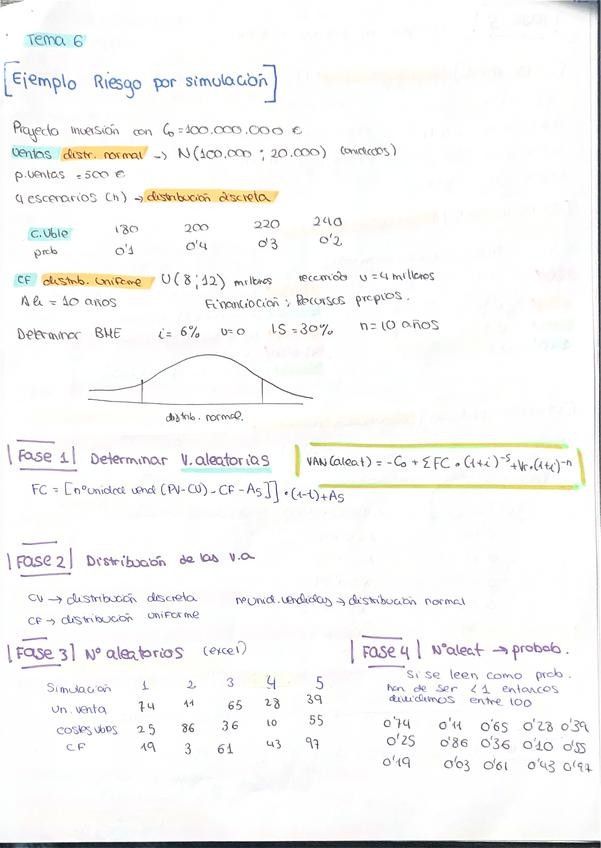 Tema 6
[Ejemplo Riesgo por simulación]
Proyecto inversión con C₀=100.000.000 €
Ventas distr. normal → N(100.000 ; 20.000) (unidades)
p.ventas = 500 €
4 escenarios (h) → distribución discreta
C.Uble 180 200 220 240
prob 0'1 0'4 0'3 0'2
CF distrib. Uniforme U(8;12) millones recorrido u=4 millones
= 10 años Financiación: Recursos propios.
Determinar BME i= 6% u=0 IS=30% n=10 años
distrib. normal.
|Fase 1| Determinar V.aleatorias VAN(aleat) = -C₀ + ΣFC • (1+i)⁻ˢ + Vr•(1+i)⁻ⁿ
FC = [nºunidad vend (PV-CU) - CF - As]] • (1-t)+As
|Fase 2| Distribución de las v.a
CV → distribución discreta nºunid.vendidas → distribución normal
CF → distribución uniforme
|Fase 3| Nº aleatorios (excel)
Simulación 1 2 3 4 5
Un. venta 74 11 65 28 39
costes vbles 25 86 36 10 55
CF 19 3 61 43 97
|Fase 4| Nºaleat → probab.
Si se leen como prob.
han de ser <1 entonces
dividimos entre 100
0'74 0'11 0'65 0'28 0'39
0'25 0'86 0'36 0'10 0'55
0'19 0'03 0'61 0'43 0'97